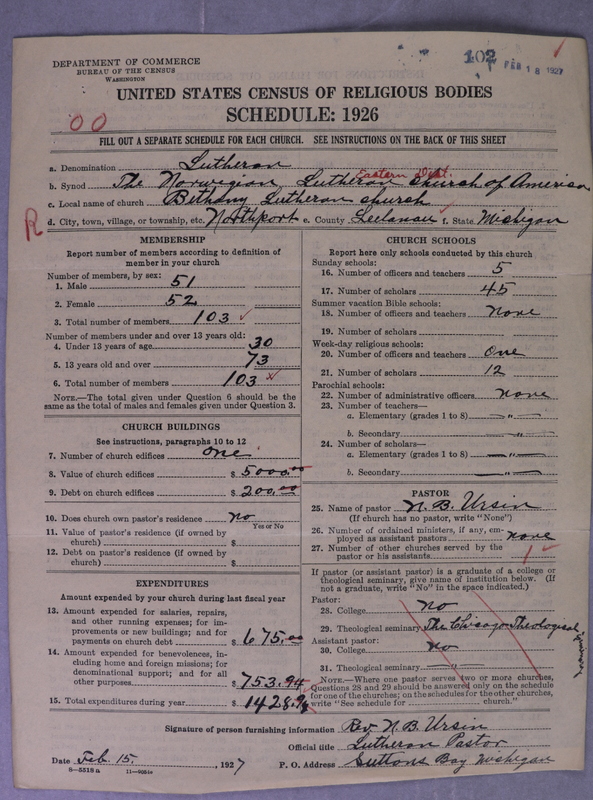 DEPARTMENT OF COMMERCE
BUREAU OF THE CENSUS
WASHINGTON
102
FEB 18 1927
UNITED STATES CENSUS OF RELIGIOUS BODIES
SCHEDULE: 1926
00
FILL OUT A SEPARATE SCHEDULE FOR EACH CHURCH. SEE INSTRUCTIONS ON THE BACK OF THIS SHEET
a. Denomination Lutheran
Eastern Dist.
b. Synod The Norwegian Lutheran Church of America
c. Local name of church Bethany Lutheran church
R
d. City, town, village, or township, etc. Northport e. County Leelanau f. State Michigan
MEMBERSHIP
Report number of members according to definition of
member in your church
Number of members, by sex:
1. Male 51
2. Female 52
3. Total number of members 103
Number of members under and over 13 years old:
4. Under 13 years of age 30
5. 13 years old and over 73
6. Total number of members 103
NOTE.—The total given under Question 6 should be the
same as the total of males and females given under Question 3.
CHURCH BUILDINGS
See instructions, paragraphs 10 to 12
7. Number of church edifices one
8. Value of church edifices $ 5000.00
9. Debt on church edifices $ 200.00
10. Does church own pastor's residence No
Yes or No
11. Value of pastor's residence (if owned by
church) $
12. Debt on pastor's residence (if owned by
church) $
EXPENDITURES
Amount expended by your church during last fiscal year
13. Amount expended for salaries, repairs,
and other running expenses; for im-
provements or new buildings; and for
payments on church debt $ 675.00
14. Amount expended for benevolences, in-
cluding home and foreign missions; for
denominational support; and for all
other purposes $ 753.94
15. Total expenditures during year $ 1428.94
CHURCH SCHOOLS
Report here only schools conducted by this church
Sunday schools:
16. Number of officers and teachers 5
17. Number of scholars 45
Summer vacation Bible schools:
18. Number of officers and teachers none
19. Number of scholars
Week-day religious schools:
20. Number of officers and teachers One
21. Number of scholars 12
Parochial schools:
22. Number of administrative officers none
23. Number of teachers—
a. Elementary (grades 1 to 8) —"—
b. Secondary —"—
24. Number of scholars—
a. Elementary (grades 1 to 8) —"—
b. Secondary —"—
PASTOR
25. Name of pastor N. B. Ursin
(If church has no pastor, write "None")
26. Number of ordained ministers, if any, em-
ployed as assistant pastors none
27. Number of other churches served by the
pastor 1
If pastor (or assistant pastor) is a graduate of a college or
theological seminary, give name of institution below. (If
not a graduate, write "No" in the space indicated.)
Pastor:
28. College No
29. Theological seminary The Chicago Theological
Assistant pastor:
30. College No
31. Theological seminary —"—
NOTE.—Where one pastor serves two or more churches,
Questions 28 and 29 should be answered only on the schedule
for one of the churches; on the schedules for the other churches,
write "See schedule for church."
Signature of person furnishing information Rev. N B. Ursin
Official title Lutheran Pastor
Date Feb. 15. , 1927 P. O. Address Suttons Bay Michigan
8—5518 a 11—9034